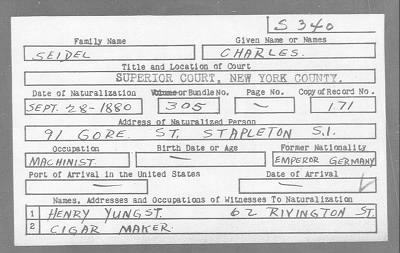 S 340
Family Name Given Name or Names
SEIDEL CHARLES.
Title and Location of Court
SUPERIOR COURT, NEW YORK COUNTY.
Date of Naturalization Volume or Bundle No. Page No. Copy of Record No.
SEPT. 28-1880 305 — 171
Address of Naturalized Person
91 GORE. ST. STAPLETON S.I.
Occupation Birth Date or Age Former Nationality
MACHINIST. — EMPEROR GERMANY
Port of Arrival in the United States Date of Arrival
— —
Names, Addresses and Occupations of Witnesses To Naturalization
1 HENRY YUNGST. 62 RIVINGTON ST.
2 CIGAR MAKER.